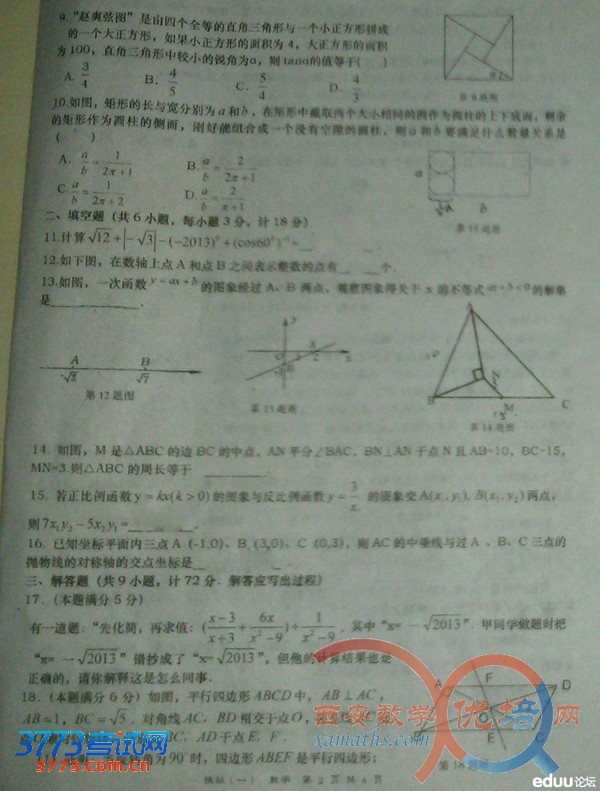 9."赵爽弦图"是由四个全等的直角三角形与一个小正方形拼成
的一个大正方形，如果小正方形的面积为 4，大正方形的面积
为 100，直角三角形中较小的锐角为α，则 tanα的值等于(  )
A. 3/4 B. 4/5 C. 5/4 D. 4/3
第 9 题图
10.如图，矩形的长与宽分别为 a 和 b，在矩形中截取两个大小相同的圆作为圆柱的上下底面，剩余
的矩形作为圆柱的侧面，刚好能组合成一个没有空隙的圆柱，则 a 和 b 要满足什么数量关系是
(  )
A. a/b = 1/(2π+1) B. a/b = 2/(2π+1)
C. a/b = 1/(2π+2) D. a/b = 2/(π+1)
a
b
第 10 题图
二、填空题（共 6 小题，每小题 3 分，计 18 分）
11.计算√12+|-√3|-(-2013)⁰+(cos60°)⁻¹=
12.如下图，在数轴上点 A 和点 B 之间表示整数的点有____个.
13.如图，一次函数 y=ax+b 的图象经过 A、B 两点，观察图象得关于 x 的不等式 ax+b<0 的解集
是____.
A B
√7
第 12 题图
y
O
2
x
第 13 题图
B
N
M
C
第 14 题图
14. 如图，M 是△ABC 的边 BC 的中点，AN 平分∠BAC，BN⊥AN 于点 N 且 AB=10，BC=15，
MN=3 则△ABC 的周长等于____.
15. 若正比例函数 y=kx(k>0) 的图象与反比例函数 y=3/x 的图象交 A(x₁,y₁), B(x₂,y₂) 两点，
则 7x₁y₂-5x₂y₁=____.
16. 已知坐标平面内三点 A (-1,0)、B (3,0)、C (0,3)，则 AC 的中垂线与过 A 、B、C 三点的
抛物线的对称轴的交点坐标是____
三、解答题（共 9 小题，计 72 分．解答应写出过程）
17.（本题满分 5 分）
有一道题："先化简，再求值：((x-3)/(x+3)+6x/(x²-9))÷1/(x²-9)，其中"x= -√2013"．甲同学做题时把
"x= -√2013"错抄成了"x=√2013"，但他的计算结果也是
正确的，请你解释这是怎么回事.
18.（本题满分 6 分）如图，平行四边形 ABCD 中，AB⊥AC，
AB=1，BC=√5．对角线 AC，BD 相交于点 O，
BC，AD 于点 E，F．
为90°时，四边形 ABEF 是平行四边形；
A F D
O
B E C
第 18 题图
模拟（一） 数学 第 2 页 共 4 页
西安数学优培网
www.xamaths.com
3773考试网
3773.COM
eduu论坛